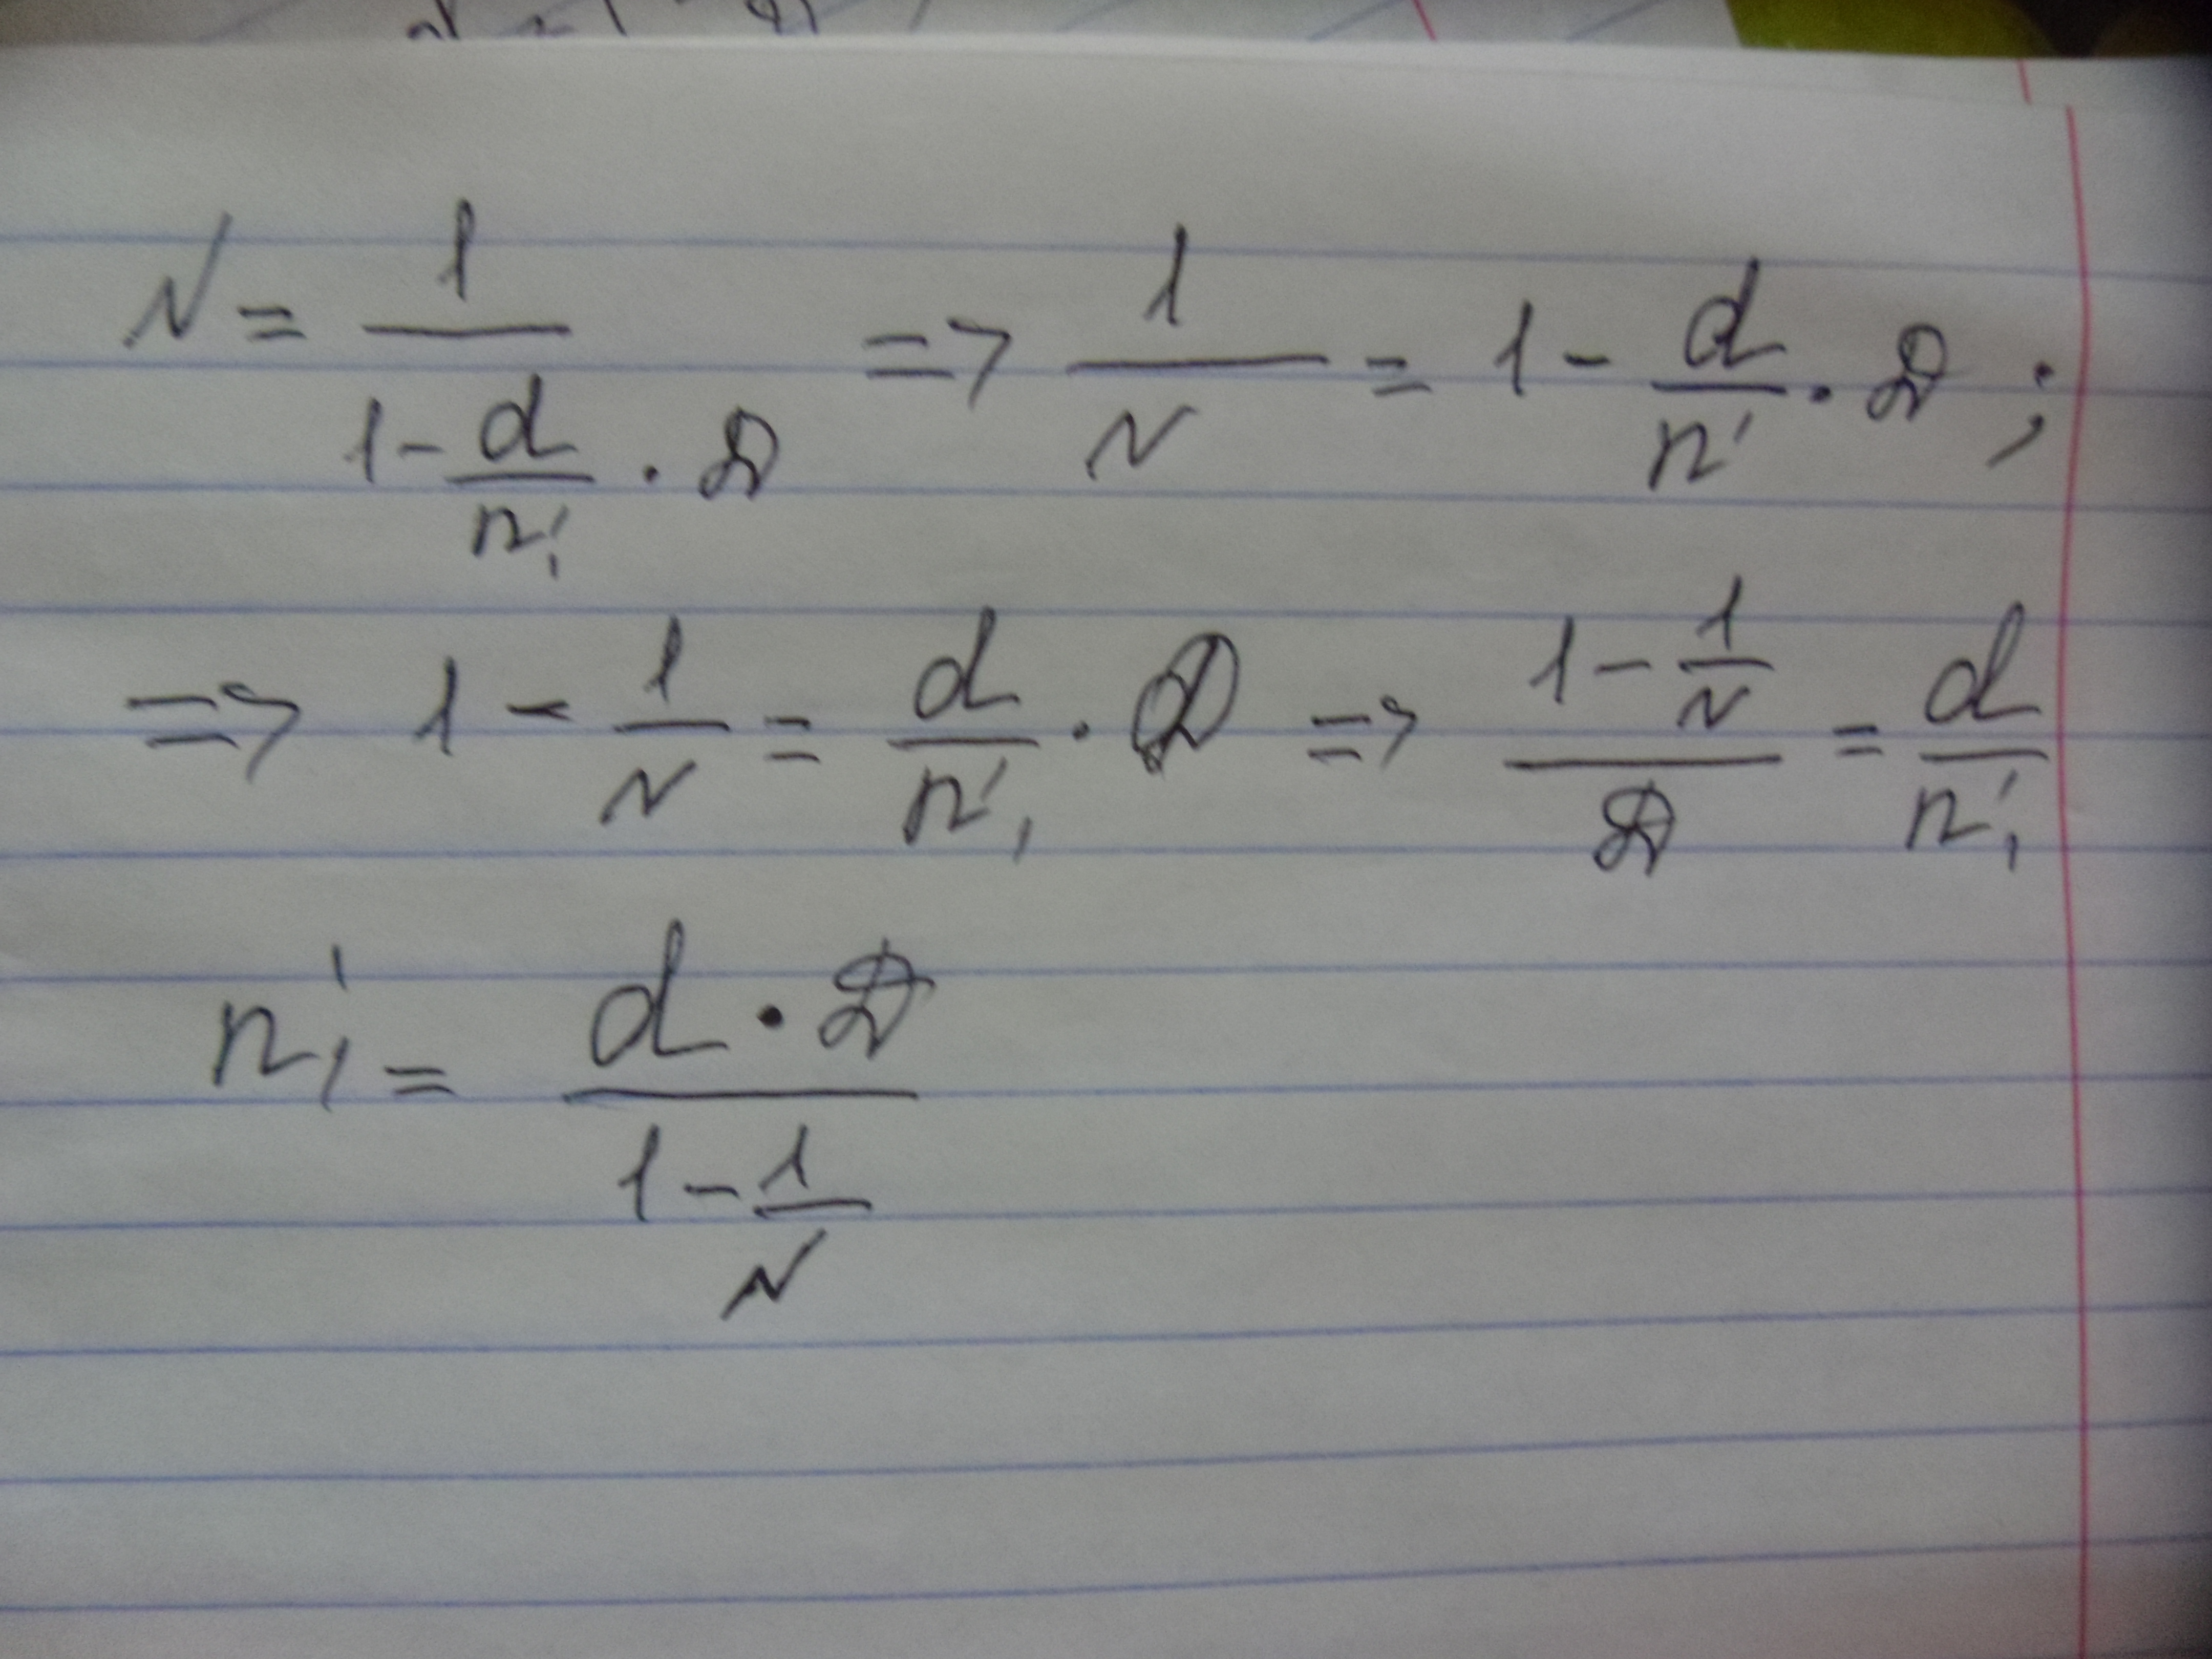 N = 1/(1 - d/n'₁ · D) => 1/N = 1 - d/n' · D ;
=> 1 - 1/N = d/n'₁ · D => (1 - 1/N)/D = d/n'₁
n'₁ = (d · D)/(1 - 1/N)